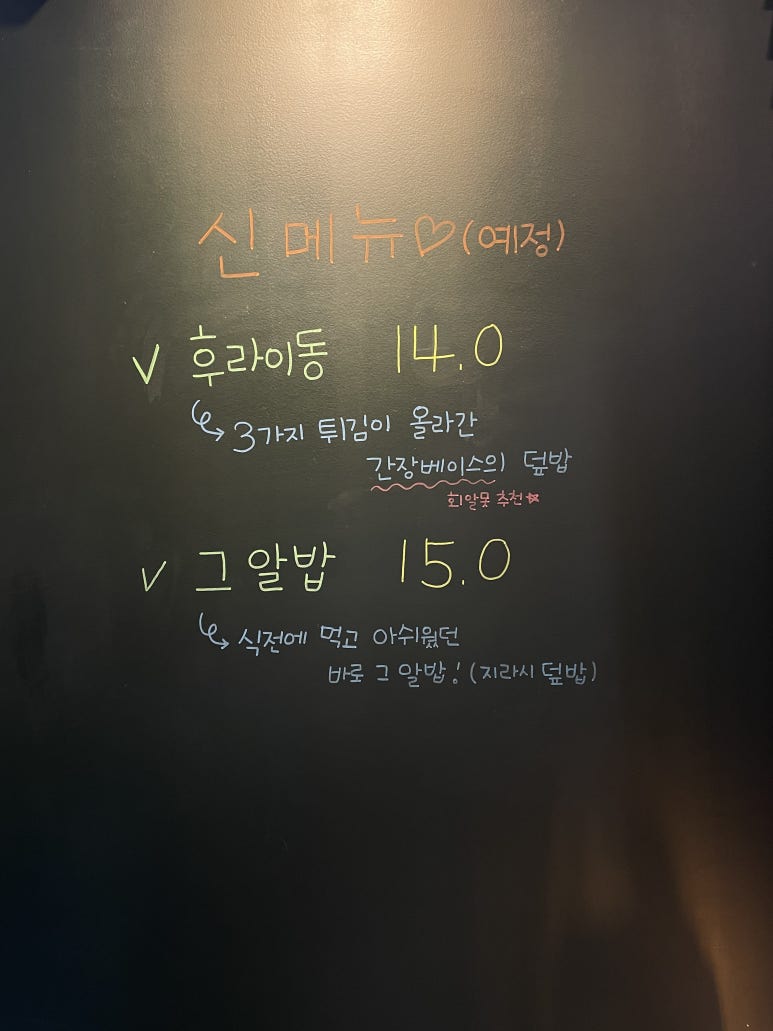 신메뉴♡(예정)
✓ 후라이동 14.0
↳ 3가지 튀김이 올라간
간장베이스의 덮밥
회알못 추천☆
✓ 그 알밥 15.0
↳ 식전에 먹고 아쉬웠던
바로 그 알밥! (지라시 덮밥)